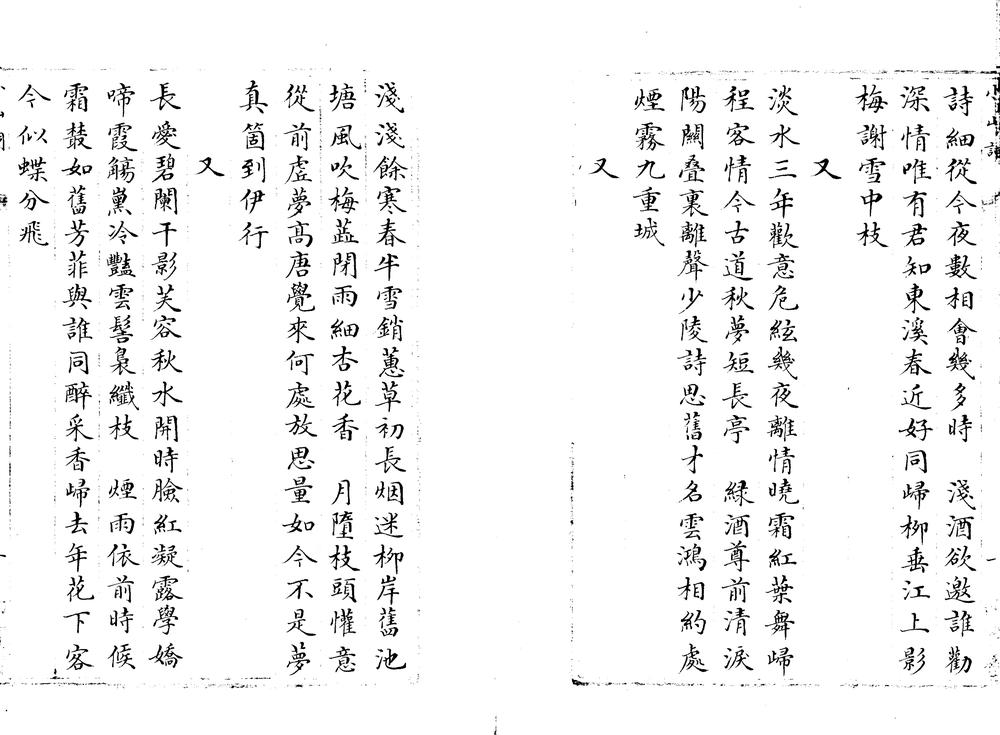 詩細從今夜數相會幾多時　淺酒欲邀誰勸
深情唯有君知東溪春近好同歸柳垂江上影
梅謝雪中枝
又
淡水三年歡意危絃幾夜離情曉霜紅葉舞歸
程客情今古道秋夢短長亭　綠酒尊前清淚
陽關疊裏離聲少陵詩思舊才名雲鴻相約處
煙霧九重城
又
淺淺餘寒春半雪銷蕙草初長烟迷柳岸舊池
塘風吹梅蕋閉雨細杏花香　月墮枝頭懽意
從前虗夢高唐覺來何處放思量如今不是夢
真箇到伊行
又
長愛碧闌干影芙容秋水開時臉紅凝露學嬌
啼霞觴熏冷豔雲髻裊纖枝　煙雨依前時候
霜藂如舊芳菲與誰同醉采香歸去年花下客
今似蝶分飛